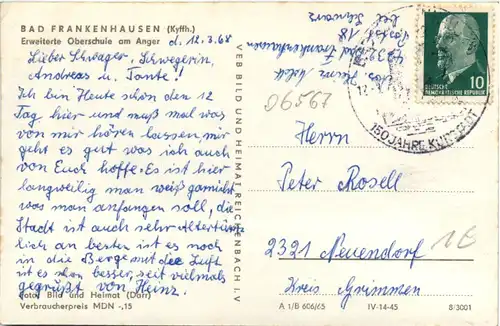 BAD FRANKENHAUSEN (Kyffh.)
Erweiterte Oberschule am Anger
d. 12.3.68
Lieber Schwager, Schwegerin,
Andreas u. Tante!
Ich bin Heute schon den 12
Tag hier und muß mal was
von mir hören lassen, mir
geht es gut was ich auch
von Euch hoffe. Es ist hier
langweilig man weiß garnicht
was man anfangen soll, die
Stadt ist auch sehr Altertüm-
lich an besten ist es noch
in die Berge mit die Luft
ist es schon besser, seit vielmals
gegrüßt von Heinz.
Foto: Bild und Heimat (Darr)
Verbraucherpreis MDN -,15
VEB BILD UND HEIMAT REICHENBACH I. V
Abs. Heinz
4732 Bad Frankenhausen
18
bei Schwarz
06567
DEUTSCHE
DEMOKRATISCHE REPUBLIK
10
150 JAHRE KURBETRIEB
Herrn
Peter Rosell
2321 Neuendorf
Kreis Grimmen
1€
A 1/B 606/65 IV-14-45 8/3001